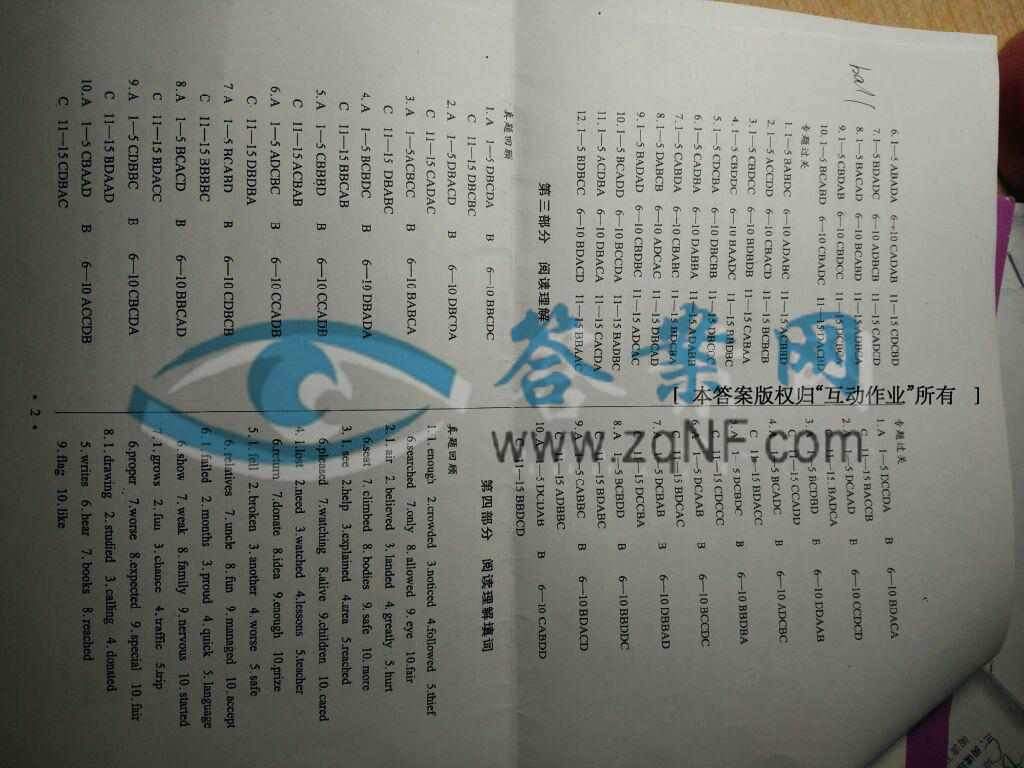 ball
6. 1—5 ABADA 6—10 CADAB 11—15 CDCBD
7. 1—5 BDADC 6—10 ADBCB 11—15 CADCD
8. 1—5 BACAD 6—10 BCABD 11—15 ADBCA
9. 1—5 CBDAB 6—10 CBDCC
10. 1—5 BCABD 6—10 CBADC 11—15 DACBD
专题过关
1. 1—5 BABDC 6—10 ADABC 11—15 ACBBD
2. 1—5 ACCDD 6—10 CBACD 11—15 BCBCB
3. 1—5 CBDCC 6—10 BDBDB 11—15 CABAA
4. 1—5 CBDDC 6—10 BAADC 11—15 BBDBC
5. 1—5 CDCBA 6—10 DBCBB 11—15 DBCDC
6. 1—5 CADBA 6—10 DABBA 11—15 ADABB
7. 1—5 CABDA 6—10 CBABC 11—15 BDCBA
8. 1—5 DABCB 6—10 ADCAC 11—15 DBCAD
9. 1—5 BADAD 6—10 CBDBC 11—15 ADCAC
10. 1—5 BCADD 6—10 BCCDA 11—15 BADBC
11. 1—5 ACDBA 6—10 DBACA 11—15 CACDA
12. 1—5 BDBCC 6—10 BDACD 11—15 BBAAC
第三部分 阅读理解
真题回顾
1. A 1—5 DBCDA B 6—10 BBCDC
C 11—15 DBCBC
2. A 1—5 DBACD B 6—10 DBCDA
C 11—15 CADAC
3. A 1—5ACBCC B 6—10 BABCA
C 11—15 DBABC
4. A 1—5 BCBDC B 6—10 DBADA
C 11—15 BBCAB
5. A 1—5 CBBBD B 6—10 CCADB
C 11—15 ACBAB
6. A 1—5 ADCBC B 6—10 CCADB
C 11—15 DBDBA
7. A 1—5 BCABD B 6—10 CDBCB
C 11—15 BBBBC
8. A 1—5 BCACD B 6—10 BBCAD
C 11—15 BDACC
9. A 1—5 CDBBC B 6—10 CBCDA
C 11—15 BDAAD
10. A 1—5 CBAAD B 6—10 ACCDB
C 11—15 CDBAC
专题过关
1. A 1—5 DCCDA B 6—10 BDACA
C 11—15 BACCB
2. A 1—5 DCAAD B 6—10 CCDCD
C 11—15 BADCA
3. 1—5 BCDBD B 6—10 DDAAB
C 11—15 CCADD
4. 1—5 BCADC B 6—10 ADCBC
C 11—15 BDACC
5. A 1—5 DCBDC B 6—10 BBDBA
C 11—15 CDCCC
6. A 1—5 DCAAB B 6—10 BCCDC
C 11—15 BDCAC
7. A 1—5 DCBAB B 6—10 DBBAD
C 11—15 DCCBA
8. A 1—5 BCBDD B 6—10 BBDDC
C 11—15 BDABC
9. A 1—5 CABBC B 6—10 BDACD
C 11—15 ADBBC
10. A 1—5 DCDAB B 6—10 CABDD
C 11—15 BBDCD
第四部分 阅读理解填词
真题回顾
1. 1. enough 2. crowded 3. noticed 4. followed 5. thief
6. searched 7. only 8. allowed 9. eye 10. fair
2. 1. air 2. believed 3. landed 4. greatly 5. hurt
6. seat 7. climbed 8. bodies 9. safe 10. more
3. 1. see 2. help 3. explained 4. area 5. reached
6. pleased 7. watching 8. alive 9. children 10. cared
4. 1. lost 2. need 3. watched 4. lessons 5. teacher
6. return 7. donate 8. idea 9. enough 10. prize
5. 1. fell 2. broken 3. another 4. worse 5. safe
6. relatives 7. uncle 8. fun 9. managed 10. accept
6. 1. failed 2. months 3. proud 4. quick 5. language
6. show 7. weak 8. family 9. nervous 10. started
7. 1. grows 2. fun 3. chance 4. traffic 5. trip
6. proper 7. worse 8. expected 9. special 10. fair
8. 1. drawing 2. studied 3. calling 4. donated
5. writes 6. hear 7. books 8. reached
9. flag 10. like
· 2 ·
答案网
www.zqNF.com
[ 本答案版权归“互动作业”所有 ]